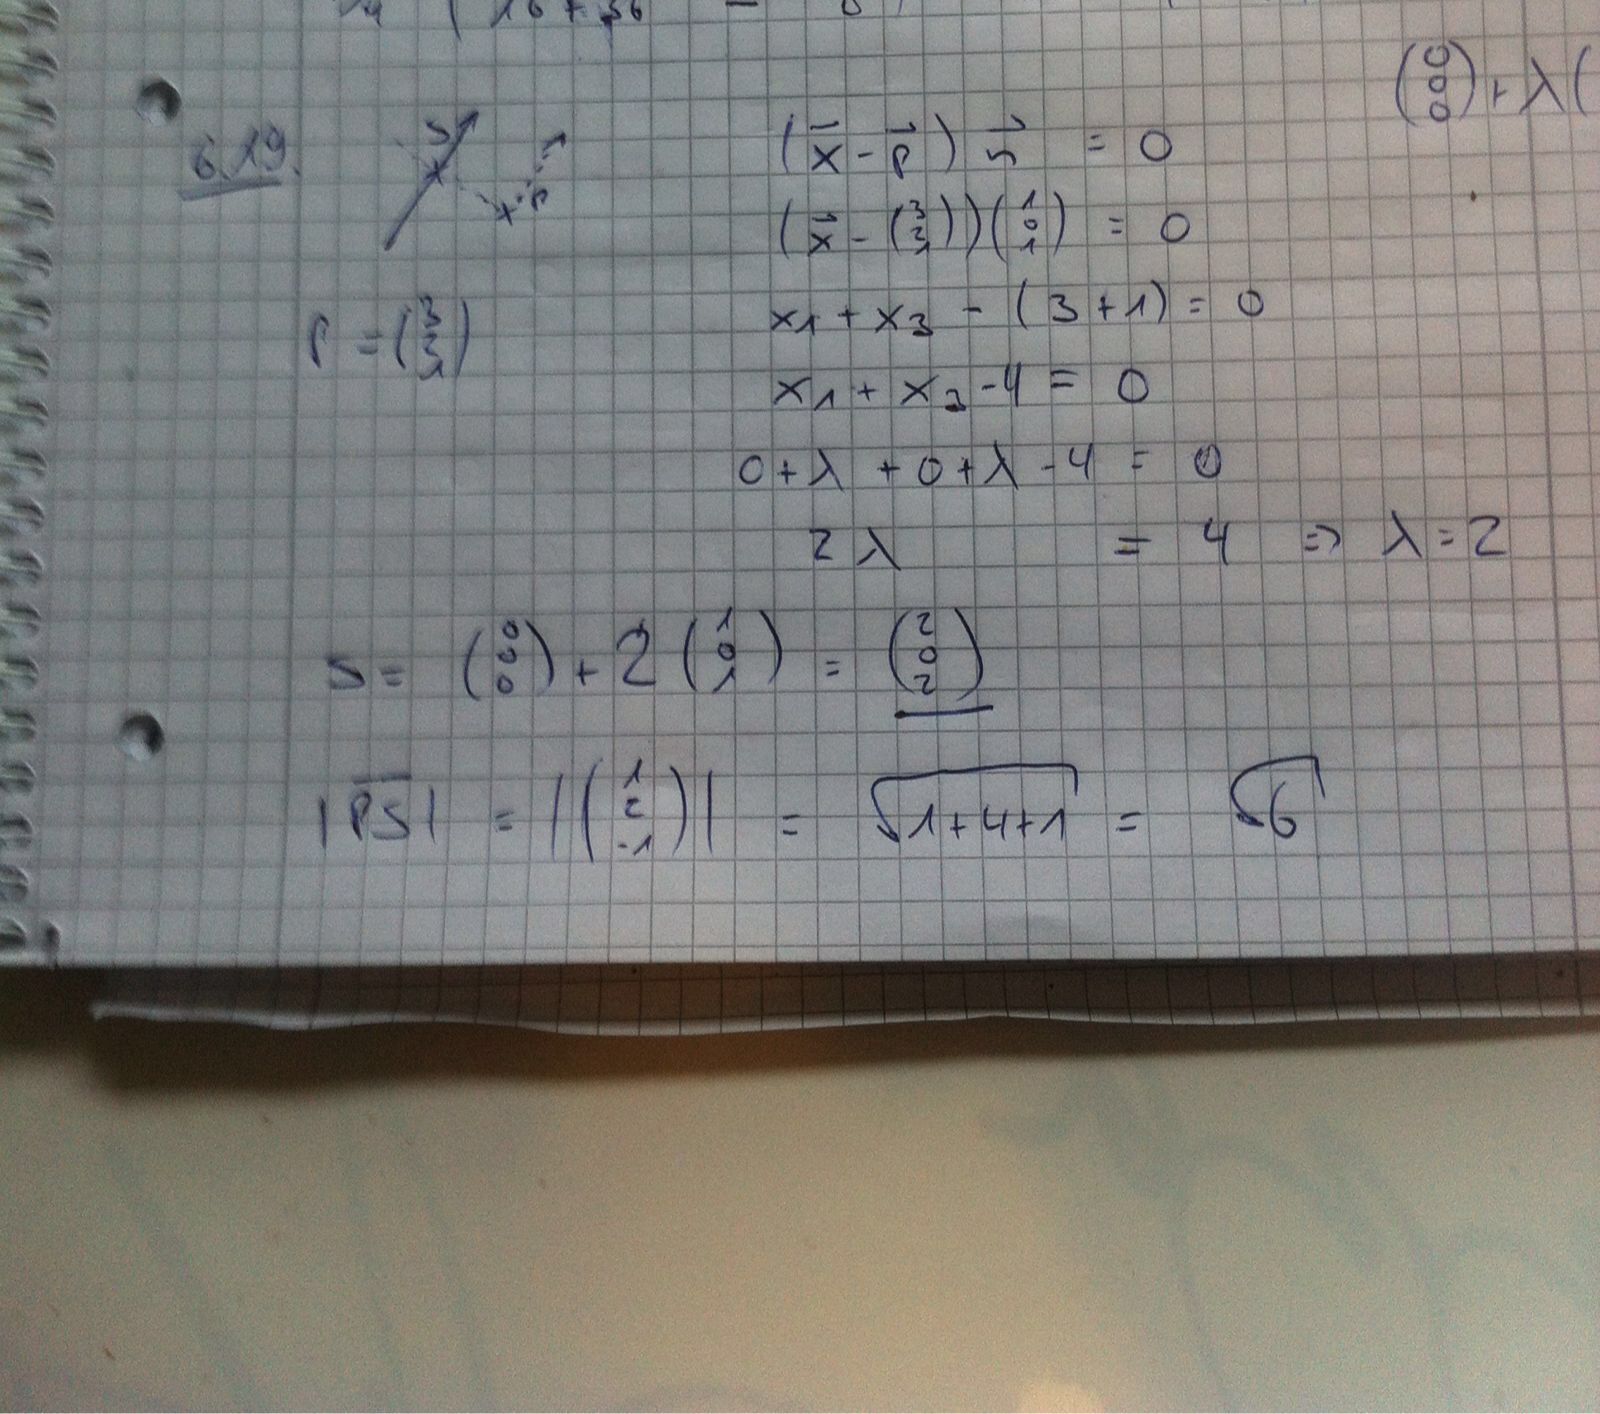 16 + 36 =
(0 0 0) + λ (
6.19.
S
P
(x⃗ - p⃗) n⃗ = 0
(x⃗ - (3 2 1)) (1 0 1) = 0
x₁ + x₃ - (3 + 1) = 0
P =
x₁ + x₃ - 4 = 0
0 + λ + 0 + λ - 4 = 0
2 λ = 4 ⇒ λ = 2
S = (0 0 0) + 2 (1 0 1) = (2 0 2)
|PS| = |(1 2 -1)| = √1+4+1 = √6